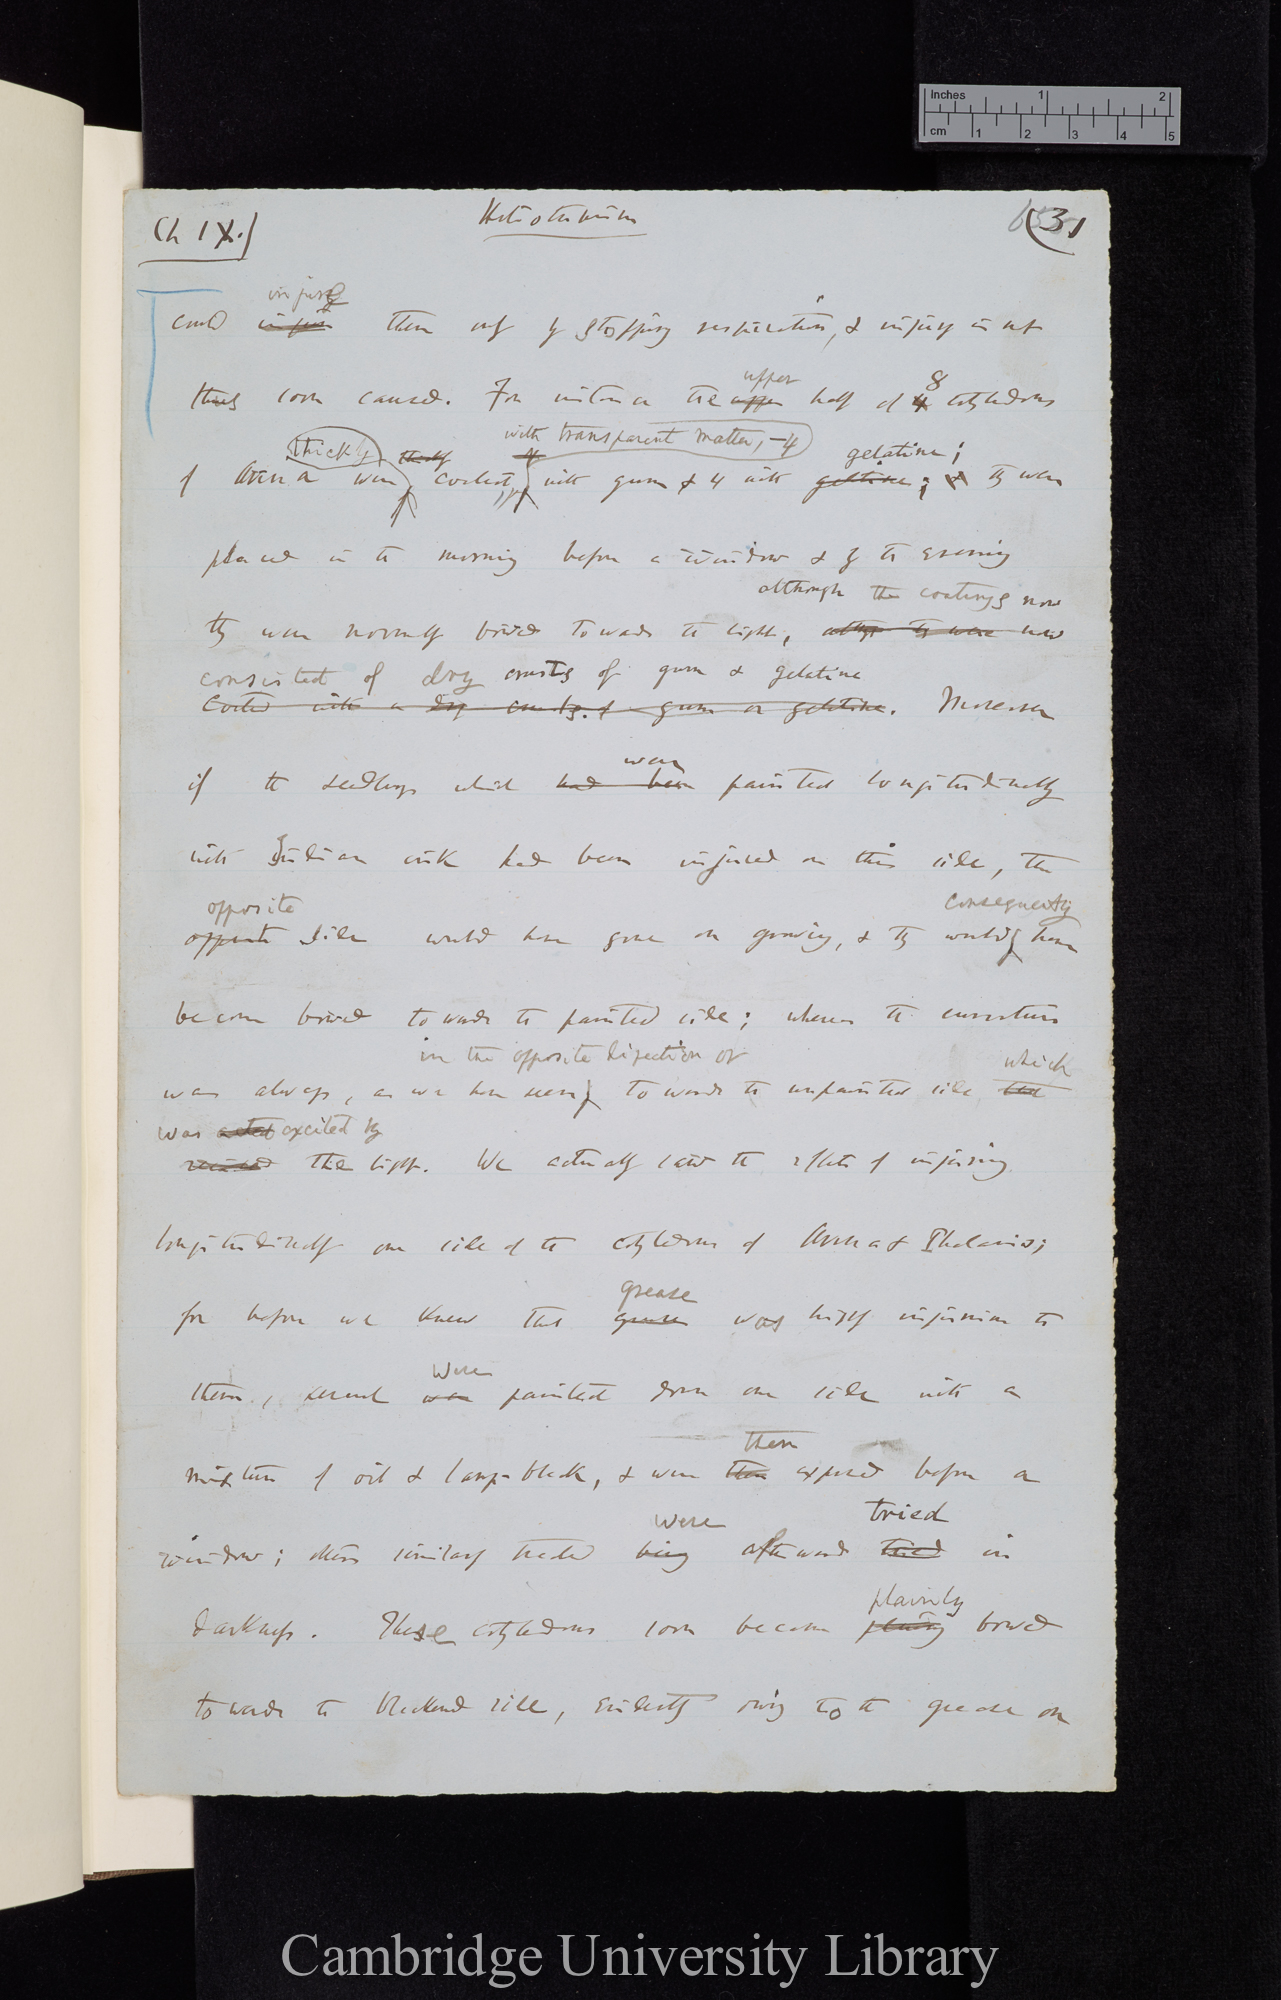 Inches 1 2
cm 1 2 3 4 5
Ch IX.)
Heliotropism
(31
injure
could injure them only by stopping respiration, & injury is not
upper 8
thus soon caused. For instance the upper half of 4 cotyledons
thickly with transparent matter,—4 gelatine;
of Avena were coated, with gum & 4 with gelatine; & they were
placed in the morning before a window & by the evening
although the coatings now
they were normally bowed towards the light, altho' they were now
consisted of dry crusts of gum & gelatine
coated with a dry crusts of gum or gelatine. Moreover
were
if the seedlings which had been painted longitudinally
with Indian ink had been injured on this side, the
opposite consequently
opposite side would have gone on growing, & they would have
become bowed towards the painted side; whereas the curvature
in the opposite direction or which
was always, as we have seen, towards the unpainted side that
was acted excited by
received the light. We actually saw the effects of injuring
longitudinally one side of the cotyledons of Avena & Phalaris;
grease
for before we knew that grease was highly injurious to
were
them, several were painted down one side with a
then
mixture of oil & lamp-black, & were then exposed before a
were tried
window; others similarly treated being afterwards tried in
plainly
darkness. These cotyledons soon became plainly bowed
towards the blackened side, evidently owing to the grease on
Cambridge University Library